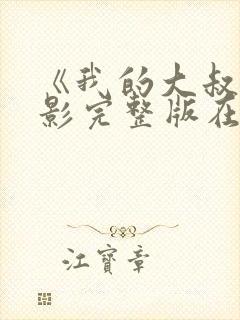 《我的大叔
影完整版在
江寶章